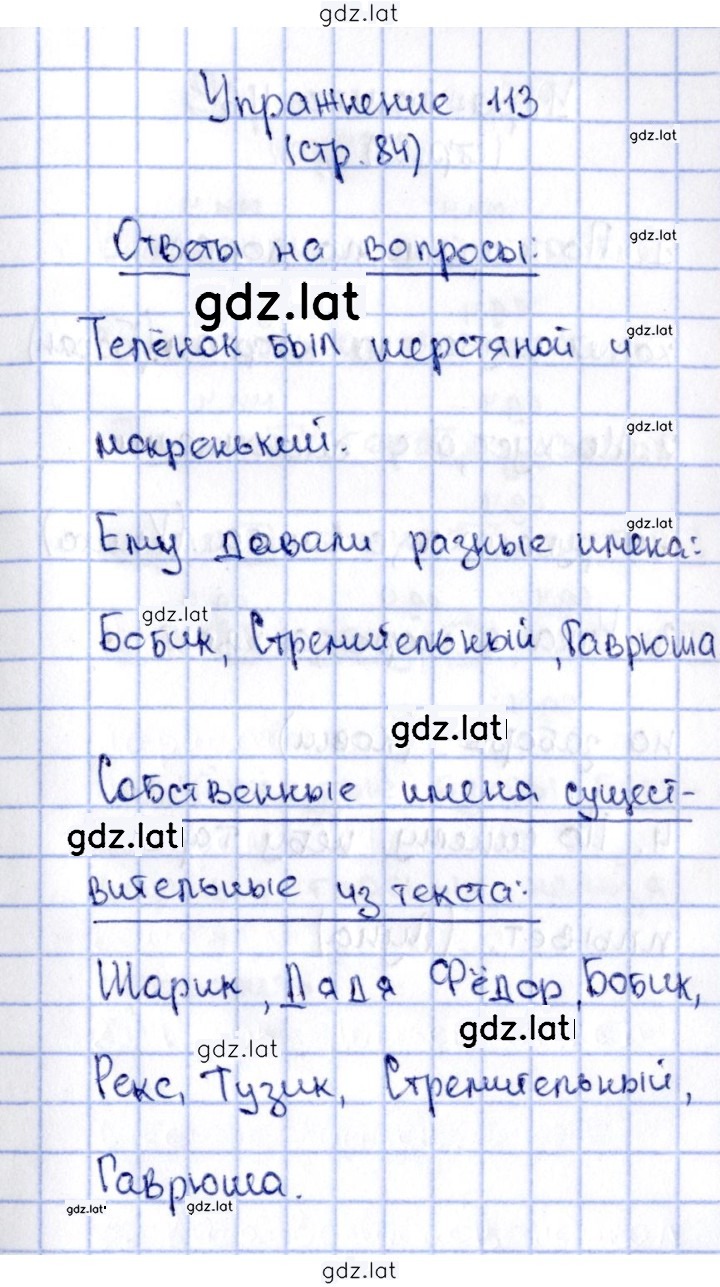 gdz.lat
Упражнение 113
gdz.lat
(стр. 84)
Ответы на вопросы:
gdz.lat
gdz.lat
Телёнок был шерстяной и
gdz.lat
мокренький.
gdz.lat
Ему давали разные имена:
gdz.lat
gdz.lat
Бобик, Стремительный, Гаврюша
gdz.lat
Собственные имена сущест-
gdz.lat
вительные из текста:
Шарик, Дядя Фёдор, Бобик,
gdz.lat
gdz.lat
Рекс, Тузик, Стремительный,
Гаврюша.
gdz.lat
gdz.lat
gdz.lat